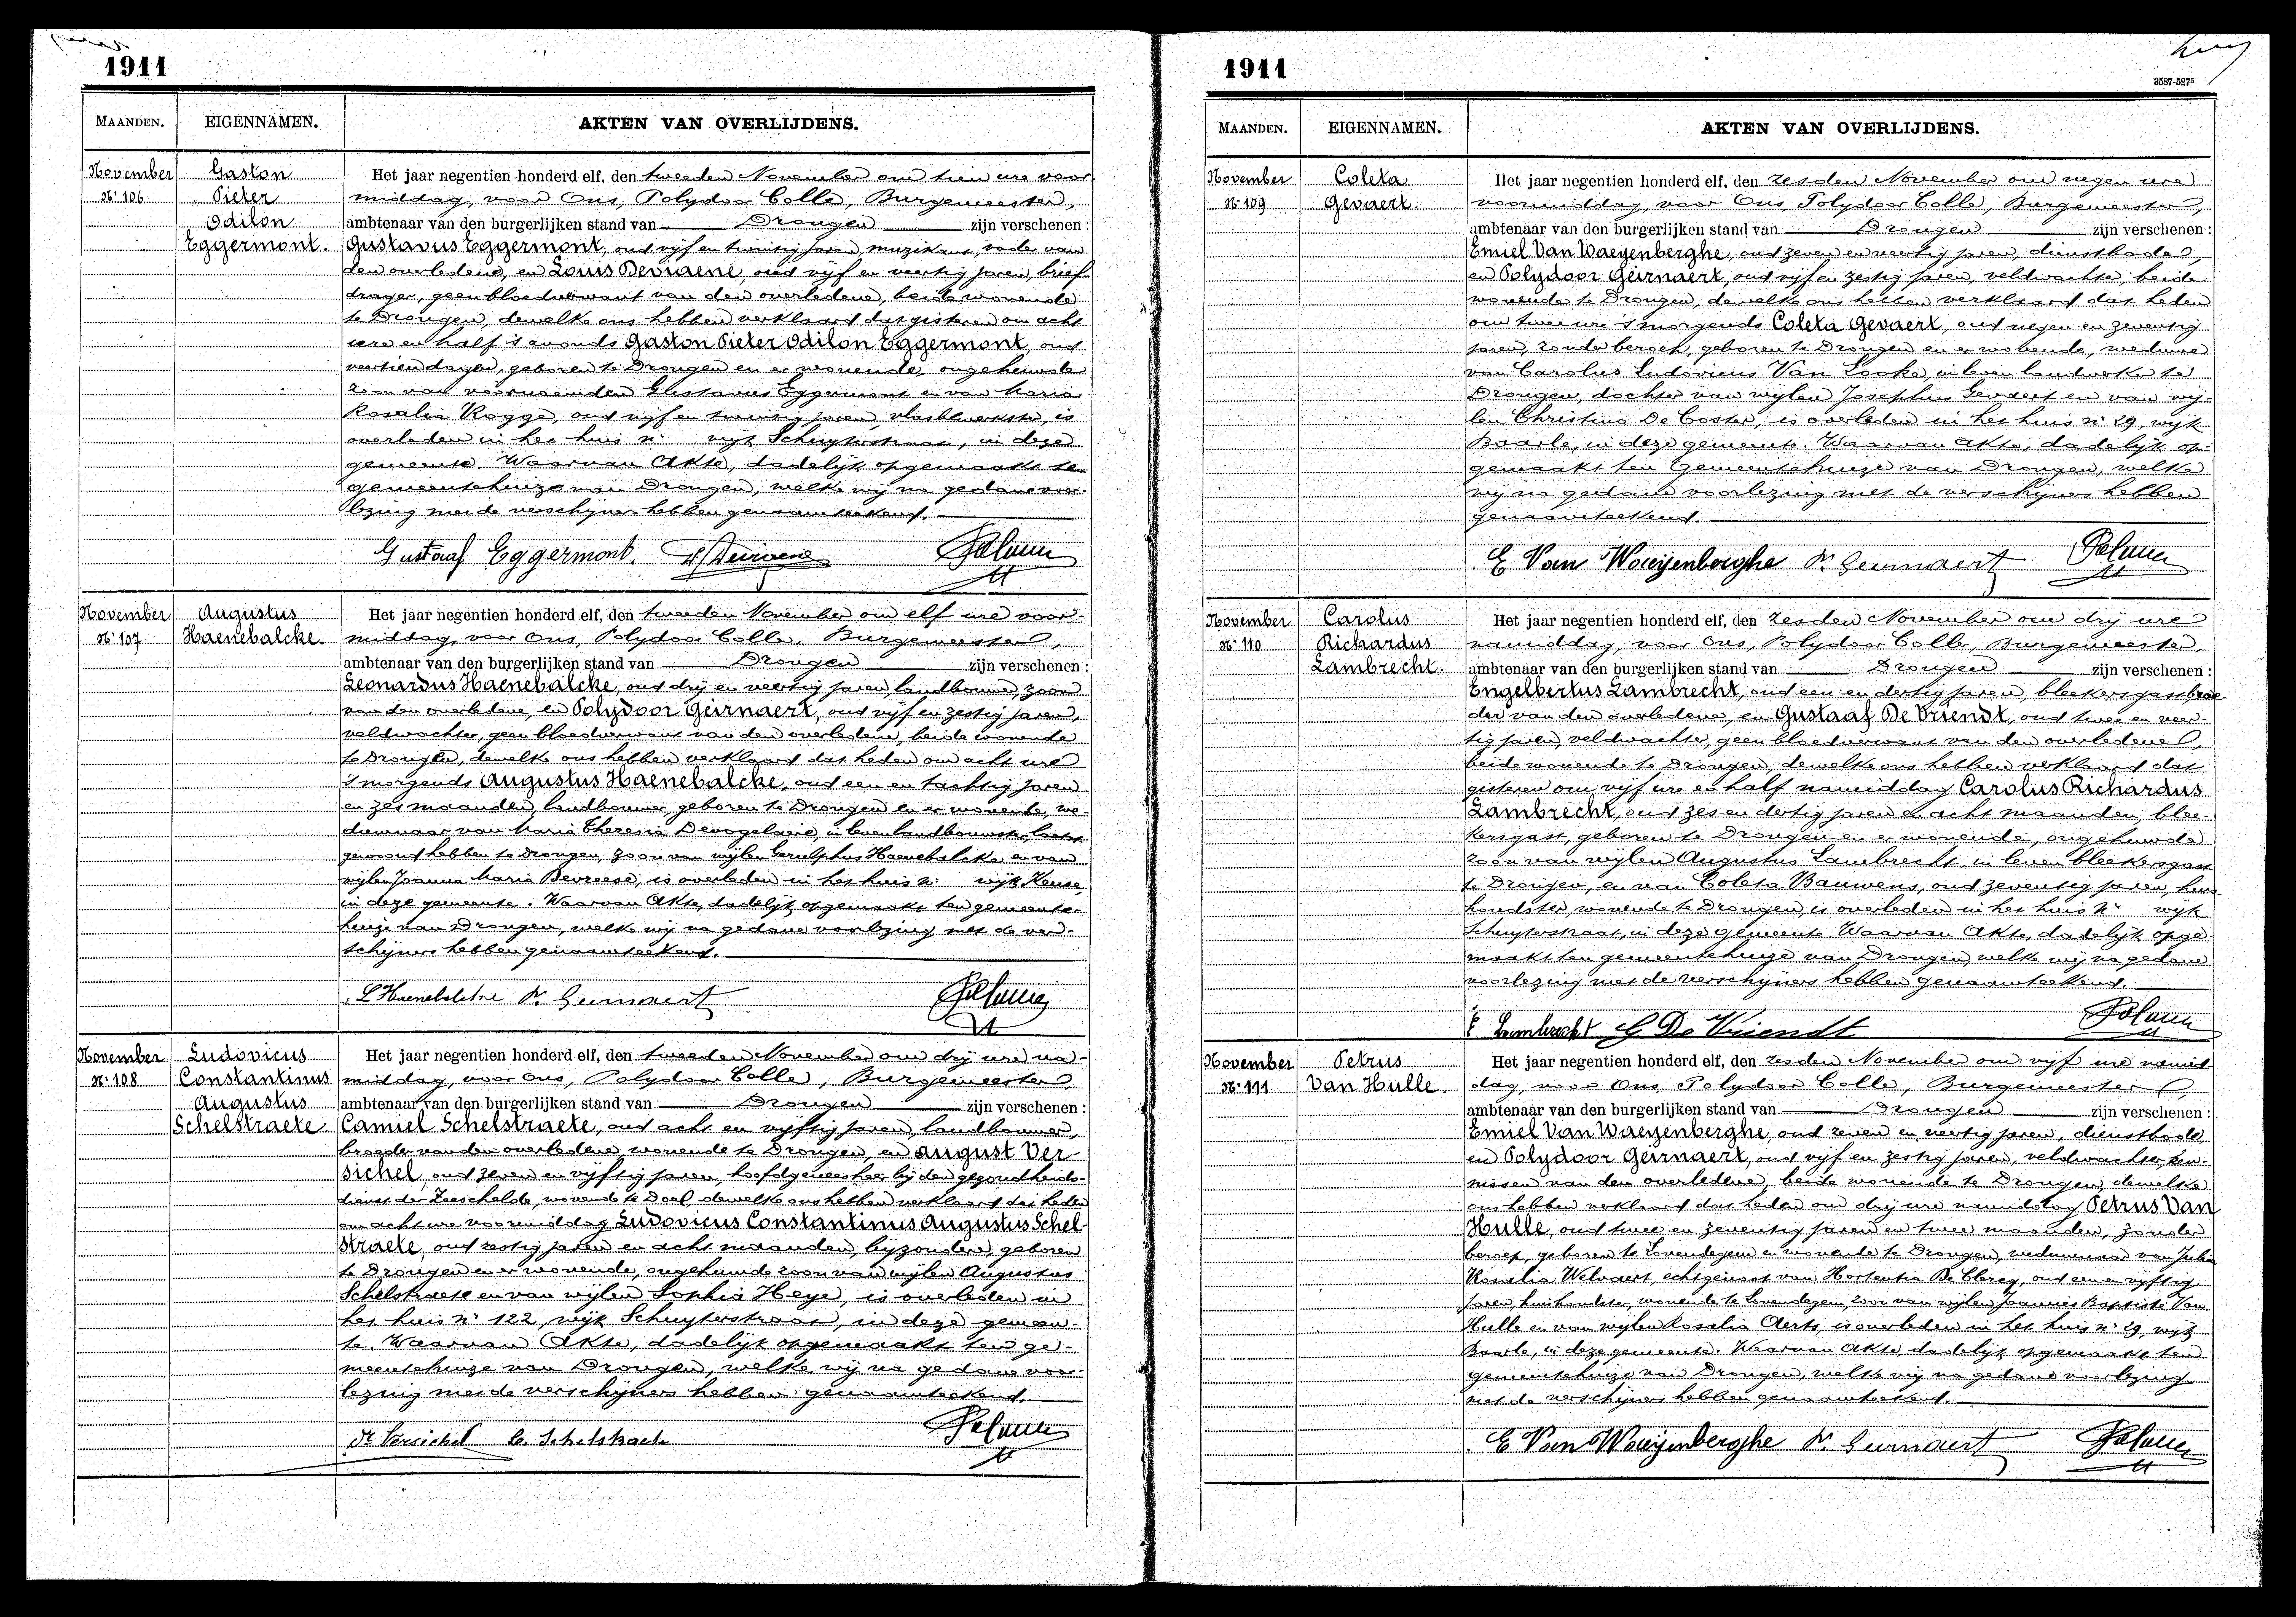 1911
MAANDEN. EIGENNAMEN. AKTEN VAN OVERLIJDENS.
November
N.r 106
Gaston
Pieter
Odilon
Eggermont.
Het jaar negentien honderd elf, den tweeden November om tien ure voor
middag, voor Ons, Polydoor Colle, Burgemeester,
ambtenaar van den burgerlijken stand van Drongen zijn verschenen :
Gustavus Eggermont, oud vijf en twintig jaren, muzikant, vader van
den overledene, en Louis Devriaene, oud vijf en veertig jaren, brief
drager, geen bloedverwant van den overledene, beide wonende
te Drongen, dewelke ons hebben verklaard dat gisteren om acht
ure en half 's avonds Gaston Pieter Odilon Eggermont, oud
veertien dagen, geboren te Drongen en er wonende, ongehuwde
zoon van voornoemden Gustavus Eggermont en van Maria
Rosalia Rogge, oud vijf en twintig jaren, vlasbewerkster, is
overleden in het huis n.r wijk Schuyterstraat, in deze
gemeente. Waarvan Akte, dadelijk opgemaakt ten
gemeentehuize van Drongen, welke wij na gedane voor-
lezing met de verschijners hebben genaamteekend.
Gustaaf Eggermont.
November
N.r 107
Augustus
Haenebalcke.
Het jaar negentien honderd elf, den tweeden November om elf ure voor-
middag, voor Ons, Polydoor Colle, Burgemeester,
ambtenaar van den burgerlijken stand van Drongen zijn verschenen :
Leonardus Haenebalcke, oud drij en veertig jaren, landbouwer, zoon
van den overledene, en Polydoor Geirnaert, oud vijf en zestig jaren,
veldwachter, geen bloedverwant van den overledene, beide wonende
te Drongen, dewelke ons hebben verklaard dat heden om acht ure
's morgends Augustus Haenebalcke, oud een en tachtig jaren
en zes maanden, landbouwer, geboren te Drongen en er wonende, we-
duwnaar van Maria Theresia Devogelaere, in leven landbouwster, laatst
gewoond hebben te Drongen, zoon van wijlen Gerulphus Haenebalcke en van
wijlen Joanna Maria Devreese, is overleden in het huis n.r wijk Keuse
in deze gemeente. Waarvan Akte, dadelijk opgemaakt ten gemeente-
huize van Drongen, welke wij na gedane voorlezing met de ver-
schijners hebben genaamteekend.
L Haenebalcke P. Geirnaert
November
N.r 108
Ludovicus
Constantinus
Augustus
Schelstraete.
Het jaar negentien honderd elf, den tweeden November om drij ure na-
middag, voor Ons, Polydoor Colle, Burgemeester,
ambtenaar van den burgerlijken stand van Drongen zijn verschenen :
Camiel Schelstraete, oud acht en vijftig jaren, landbouwer,
broeder van den overledene, wonende te Drongen, en August Ver-
sichel, oud zeven en vijftig jaren, hoofdgeneesheer bij den gezondheids-
dienst der Zeeschelde, wonende te Doel, dewelke ons hebben verklaard dat heden
om acht ure voormiddag Ludovicus Constantinus Augustus Schel-
straete, oud zestig jaren en acht maanden, bijzondere, geboren
te Drongen en er wonende, ongehuwde zoon van wijlen Augustus
Schelstraete en van wijlen Sophia Heye, is overleden in
het huis n.r 122, wijk Schuyterstraat, in deze gemeen-
te. Waarvan Akte, dadelijk opgemaakt ten ge-
meentehuize van Drongen, welke wij na gedane voor-
lezing met de verschijners hebben genaamteekend.
Dr Versichel C. Schelstraete
1911
3587-5275
MAANDEN. EIGENNAMEN. AKTEN VAN OVERLIJDENS.
November
N.r 109
Coleta
Gevaert.
Het jaar negentien honderd elf, den zesden November om negen ure
voormiddag, voor Ons, Polydoor Colle, Burgemeester,
ambtenaar van den burgerlijken stand van Drongen zijn verschenen :
Emiel Van Waeyenberghe, oud zeven en veertig jaren, dienstbode,
en Polydoor Geirnaert, oud vijf en zestig jaren, veldwachter, beide
wonende te Drongen, dewelke ons hebben verklaard dat heden
om twee ure 's morgends Coleta Gevaert, oud negen en zeventig
jaren, zonder beroep, geboren te Drongen en er wonende, weduwe
van Carolus Ludovicus Van Looke, in leven landwerker te
Drongen, dochter van wijlen Josephus Gevaert en van wij-
len Christina De Coster, is overleden in het huis n.r 29, wijk
Baarle, in deze gemeente. Waarvan Akte, dadelijk op-
gemaakt ten gemeentehuize van Drongen, welke
wij na gedane voorlezing met de verschijners hebben
genaamteekend.
E Van Waeijenberghe P. Geirnaert
November
N.r 110
Carolus
Richardus
Lambrecht.
Het jaar negentien honderd elf, den zesden November om drij ure
namiddag, voor Ons, Polydoor Colle, Burgemeester,
ambtenaar van den burgerlijken stand van Drongen zijn verschenen :
Engelbertus Lambrecht, oud een en dertig jaren, bleekersgast, broe-
der van den overledene, en Gustaaf De Vriendt, oud twee en veer-
tig jaren, veldwachter, geen bloedverwant van den overledene,
beide wonende te Drongen, dewelke ons hebben verklaard dat
gisteren om vijf ure en half namiddag Carolus Richardus
Lambrecht, oud zes en dertig jaren en acht maanden, blee-
kersgast, geboren te Drongen en er wonende, ongehuwde
zoon van wijlen Augustus Lambrecht, in leven bleekersgast
te Drongen, en van Coleta Bauwens, oud zeventig jaren, huis-
houdster, wonende te Drongen, is overleden in het huis n.r wijk
Schuyterstraat, in deze gemeente. Waarvan Akte, dadelijk opge-
maakt ten gemeentehuize van Drongen, welke wij na gedane
voorlezing met de verschijners hebben genaamteekend.
E Lambrecht G De Vriendt
November
N.r 111
Petrus
Van Hulle.
Het jaar negentien honderd elf, den zesden November om vijf ure namid-
dag, voor Ons, Polydoor Colle, Burgemeester,
ambtenaar van den burgerlijken stand van Drongen zijn verschenen :
Emiel Van Waeyenberghe, oud zeven en veertig jaren, dienstbode
en Polydoor Geirnaert, oud vijf en zestig jaren, veldwachter, ken-
nissen van den overledene, beide wonende te Drongen, dewelke
ons hebben verklaard dat heden om drij ure namiddag Petrus Van
Hulle, oud twee en zeventig jaren en twee maanden, zonder
beroep, geboren te Lovendegem en wonende te Drongen, weduwnaar van Julia
Rosalia Welvaert, echtgenoot van Hortentia De Clercq, oud een en vijftig
jaren, huishoudster, wonende te Lovendegem, zoon van wijlen Joannes Baptiste Van
Hulle en van wijlen Rosalia Aerts, is overleden in het huis n.r 29, wijk
Baarle, in deze gemeente. Waarvan Akte, dadelijk opgemaakt ten
gemeentehuize van Drongen, welke wij na gedane voorlezing
met de verschijners hebben genaamteekend.
E Van Waeijenberghe P. Geirnaert